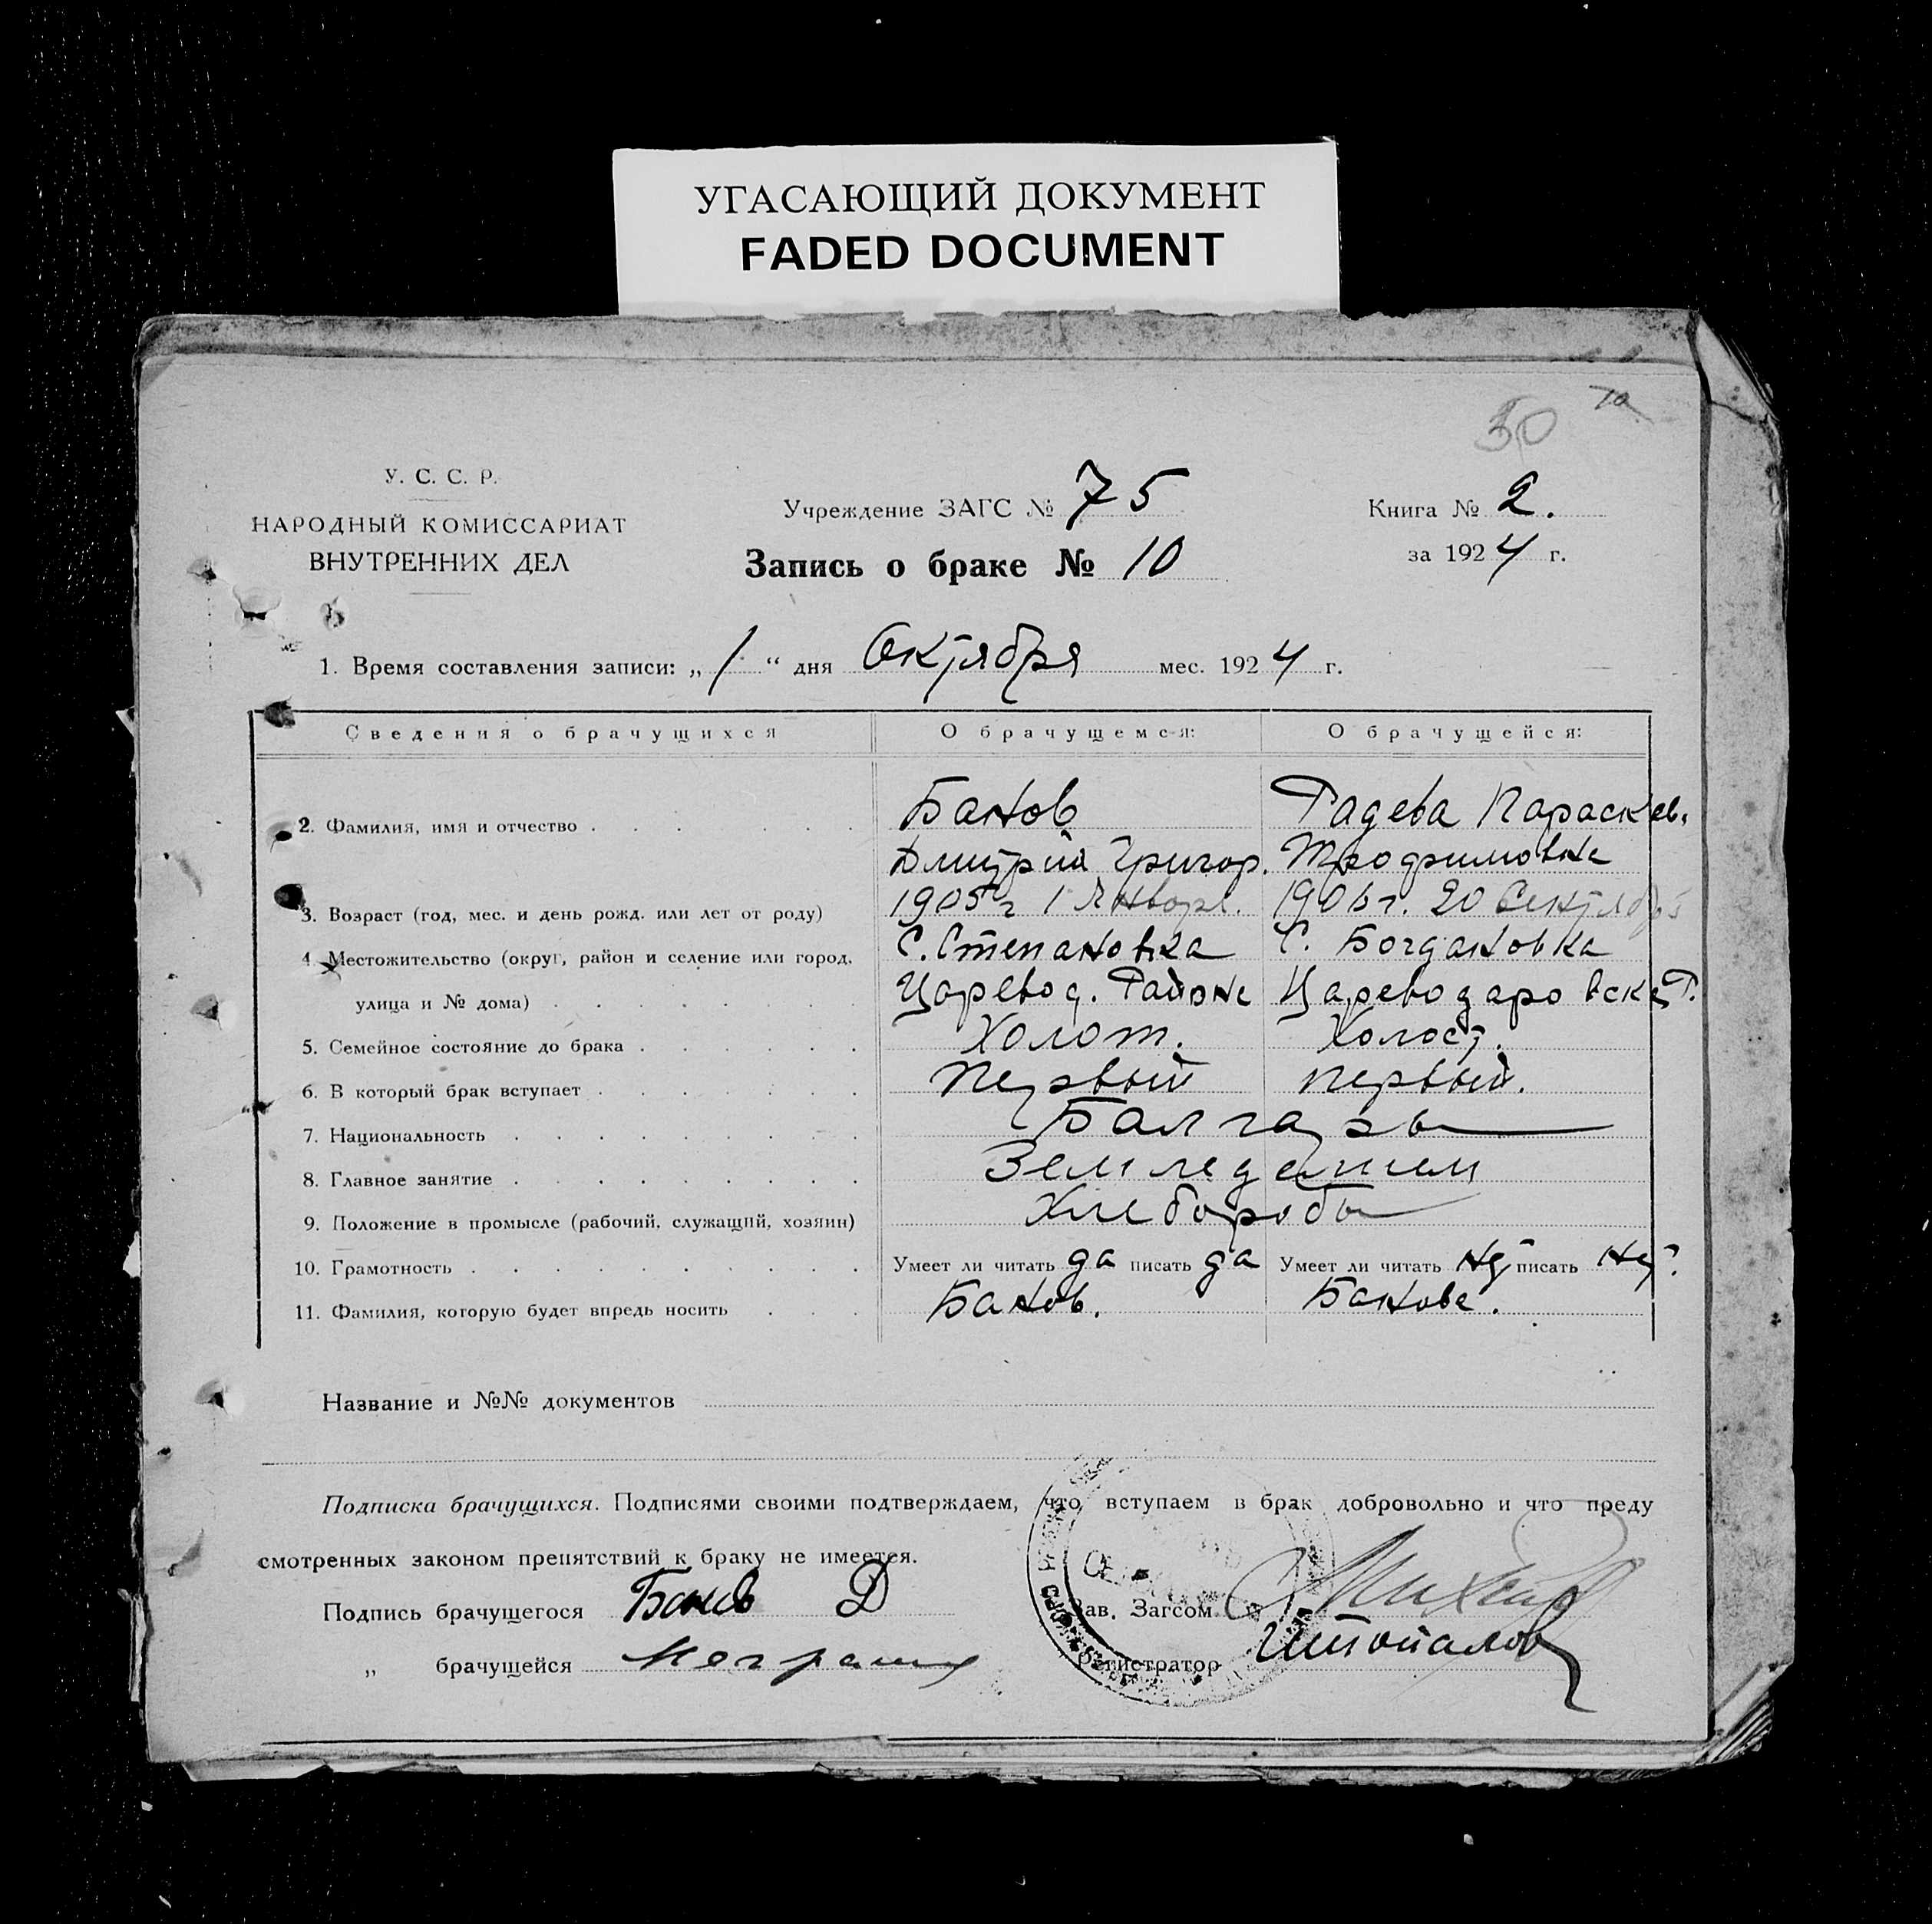 УГАСАЮЩИЙ ДОКУМЕНТ
FADED DOCUMENT
50
У. С. С. Р.
НАРОДНЫЙ КОМИССАРИАТ
ВНУТРЕННИХ ДЕЛ
Учреждение ЗАГС № 75
Запись о браке № 10
Книга № 2.
за 1924 г.
1. Время составления записи: „1“ дня Октября мес. 1924 г.
Сведения о брачущихся О брачущемся: О брачущейся:
2. Фамилия, имя и отчество Банов Радева Параскев.
Дмитрий Григор. Трофимовна
3. Возраст (год, мес. и день рожд. или лет от роду) 1905 г 1 Январе. 1906 г. 20 Сентября
4. Местожительство (округ, район и селение или город, С. Степановка С. Богдановка
улица и № дома) Царевод. Района Цареводаровска Р.
5. Семейное состояние до брака Холот. Холост.
6. В который брак вступает Первый первый.
7. Национальность Балгары
8. Главное занятие
9. Положение в промысле (рабочий, служащий, хозяин) Хлеборобы
10. Грамотность Умеет ли читать да писать да Умеет ли читать нет писать нет
11. Фамилия, которую будет впредь носить Банов. Банова.
Название и №№ документов
Подписка брачущихся. Подписями своими подтверждаем, что вступаем в брак добровольно и что преду
смотренных законом препятствий к браку не имеется.
Подпись брачущегося Банов Д
Зав. Загсом
„ брачущейся Неграмот
Регистратор